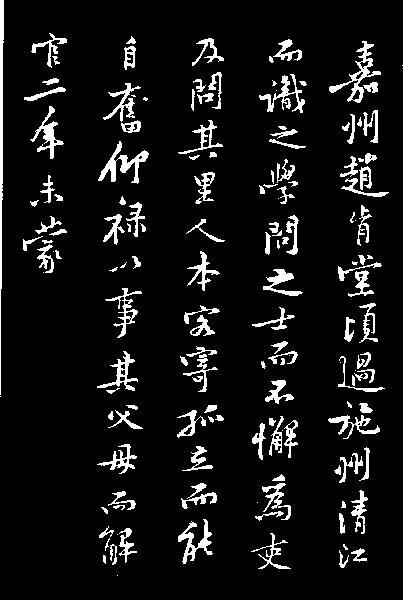 嘉州趙肯堂頃過施州清江
而識之學問之士而不懈為吏
及問其里人本客寄孤立而能
自奮仰祿以事其父母而解
官二年未蒙